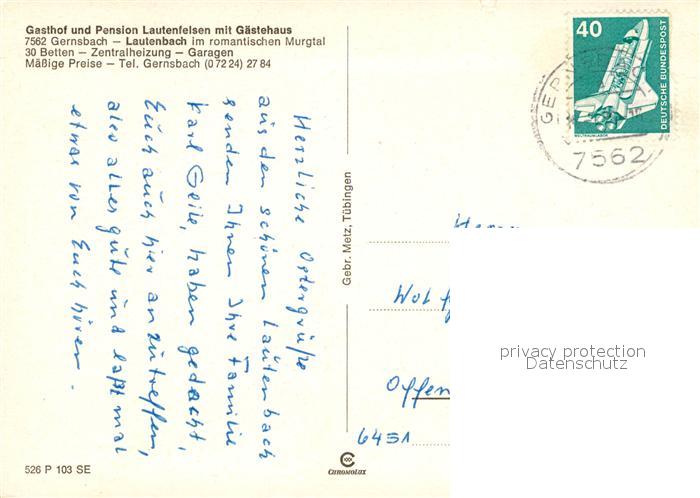 Gasthof und Pension Lautenfelsen mit Gästehaus
7562 Gernsbach – Lautenbach im romantischen Murgtal
30 Betten – Zentralheizung – Garagen
Mäßige Preise – Tel. Gernsbach (0 72 24) 27 84
Herzliche Ostergrüße
aus den schönen Lautenbach
senden Ihnen Ihre Familie
Karl Geile, haben gedacht,
Euch auch hier anzutreffen,
also alles gute und laßt mal
etwas von Euch hören.
Gebr. Metz, Tübingen
40
DEUTSCHE BUNDESPOST
WELTRAUMLABOR
7562
Offen
6451
privacy protection
Datenschutz
526 P 103 SE
CHROMOLUX